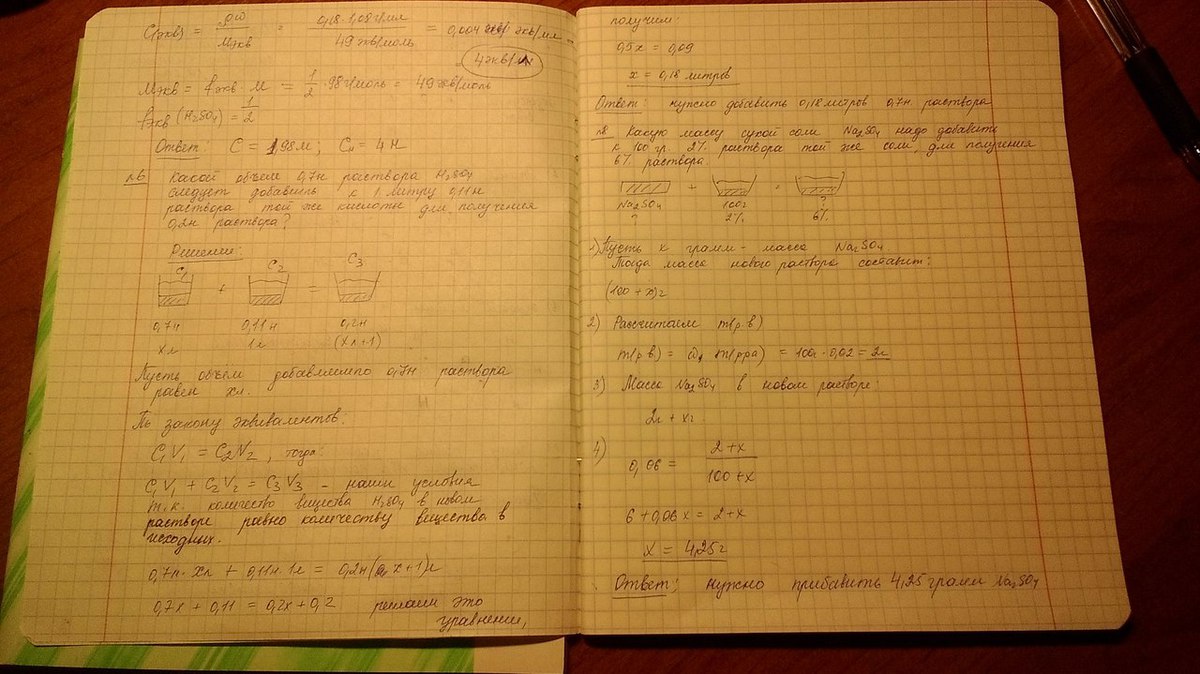 C(экв) = ρω / Mэкв = 0,18 · 1,08 г/мл / 49 экв/моль = 0,004 экв/мл =
4 экв/л
Mэкв = fэкв · M = 1/2 · 98 г/моль = 49 экв/моль
fэкв (H2SO4) = 1/2
Ответ: C = 1,98 м; Cн = 4 н
№6 Какой объем 0,7н раствора H2SO4
следует добавить к 1 литру 0,11н
раствора той же кислоты для получения
0,2н раствора?
Решение:
C1 C2 C3
+ =
0,7н 0,11н 0,2н
x л 1 л (x л + 1)
Пусть объем добавляемого 0,7н раствора
равен x л.
По закону эквивалентов.
C1V1 = C2V2, тогда:
C1V1 + C2V2 = C3V3 – наши условия
т.к. количество вещества H2SO4 в новом
растворе равно количеству вещества в
исходных.
0,7н · x л + 0,11н · 1л = 0,2н (x + 1) л
0,7x + 0,11 = 0,2x + 0,2 решаем это
уравнение,
получим:
0,5x = 0,09
x = 0,18 литров
Ответ: нужно добавить 0,18 литров 0,7н раствора
№8 Какую массу сухой соли Na2SO4 надо добавить
к 100 гр. 2% раствора той же соли, для получения
6% раствора.
+ =
Na2SO4 100г ?
? 2% 6%
1) Пусть x грамм – масса Na2SO4
Тогда масса нового раствора составит:
(100 + x) г
2) Рассчитаем m(р.в)
m(р.в) = ω1 m(р-ра) = 100г · 0,02 = 2г
3) Масса Na2SO4 в новом растворе:
2г + xг.
4) 0,06 = 2+x / 100+x
6 + 0,06x = 2 + x
x = 4,25г
Ответ: нужно прибавить 4,25 грамм Na2SO4